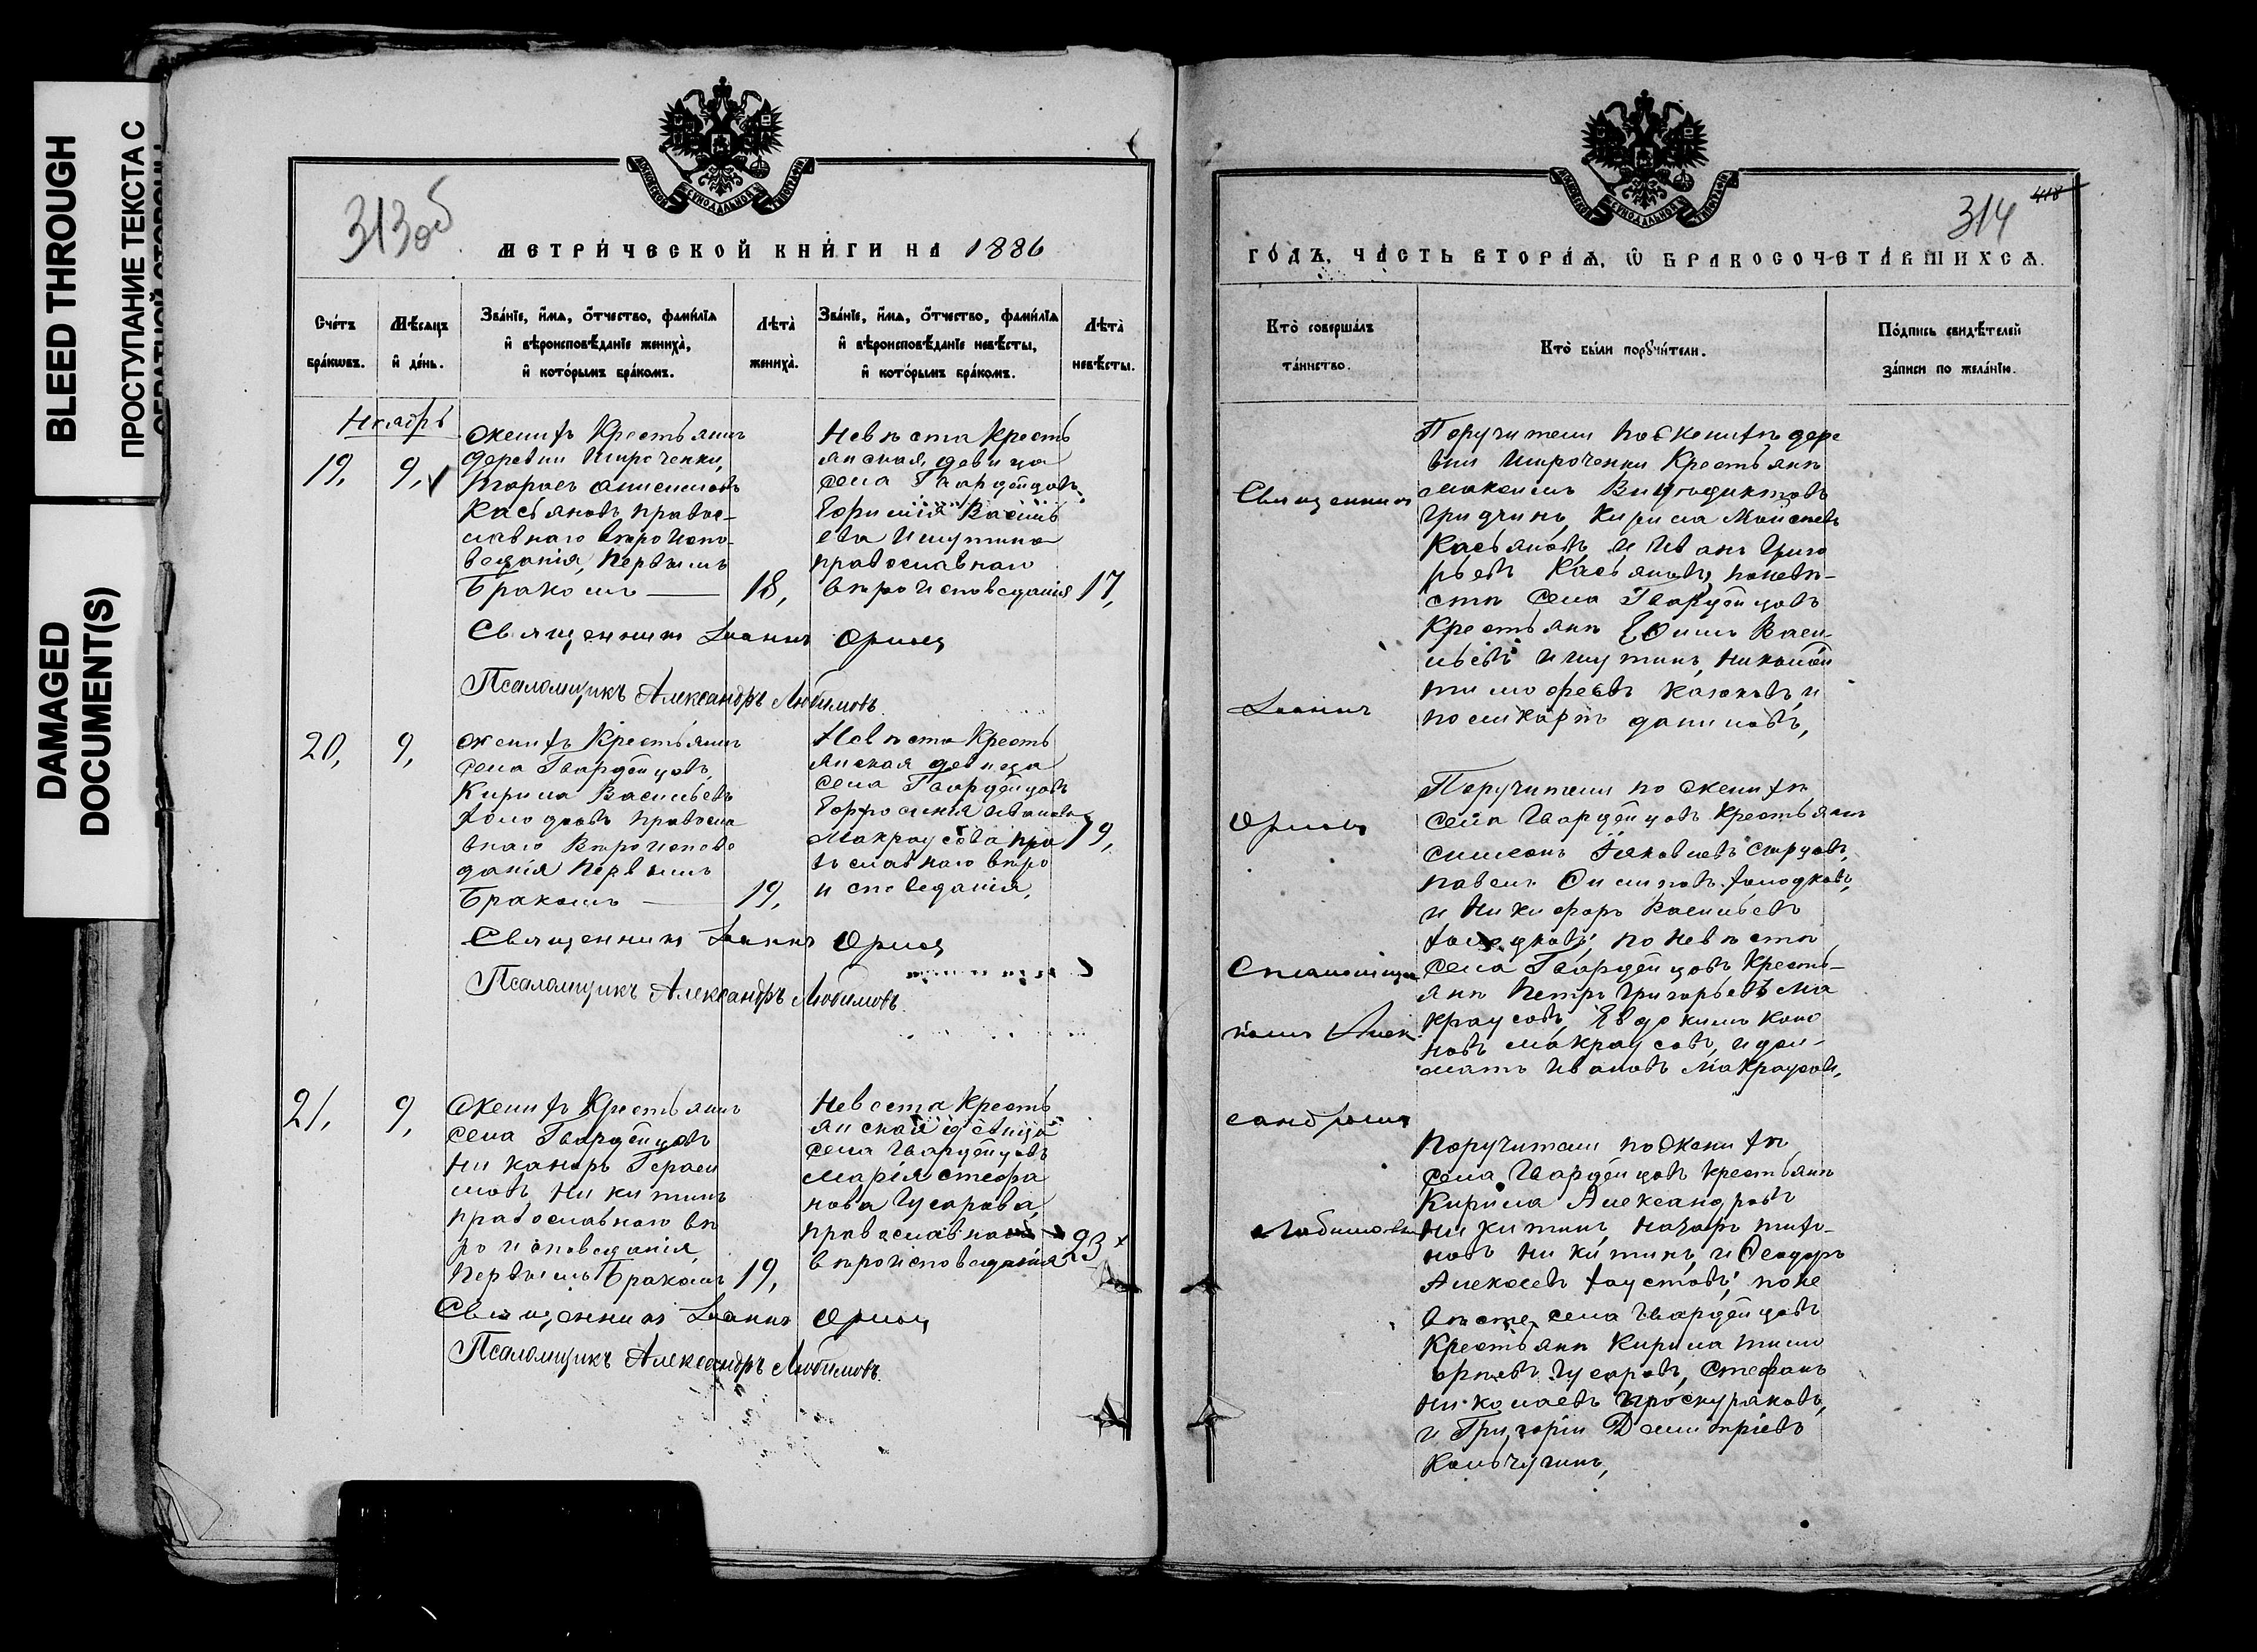 BLEED THROUGH
ПРОСТУПАНИЕ ТЕКСТА С
ОБРАТНОЙ СТОРОНЫ
DAMAGED
DOCUMENT(S)
МОСКОВСКОЙ СѴНОДАЛЬНОЙ ТИПОГРАФІИ
313 об
МЕТРИ́ЧЕСКОЙ КНИ́ГИ НА 1886
Сче́тъ
бра́кѡвъ.
Мѣ́сяцъ
и҆ де́нь.
Зва́нїе, и҆́мѧ, ѻ҆́тчество, фами́лїѧ
и҆ вѣроисповѣ́данїе жениха̀,
и҆ кото́рымъ бра́комъ.
Лѣта̀
жениха̀.
Зва́нїе, и҆́мѧ, ѻ҆́тчество, фами́лїѧ
и҆ вѣроисповѣ́данїе невѣ́сты,
и҆ кото́рымъ бра́комъ.
Лѣта̀
невѣ́сты.
Ноябрь
19,
9,
Женихъ Крестьянинъ
деревни Широченки,
Тарасъ Анисимовъ
Касьяновъ правос-
лавнаго вѣроиспо-
веданія, первымъ
Бракомъ
18,
Невѣста кресть
янская девица
села Гвардейцовъ
Василь
ева Ишутина
православнаго
вѣроисповеданія
17,
Священникъ Іоаннъ Орлов
Псаломщикъ Александръ Любимовъ.
20,
9,
Женихъ Крестьянинъ
села Гвардейцовъ,
Кирила Васильевъ
Холодковъ правосла
внаго Вѣроиспове
данія первымъ
Бракомъ
19,
Невѣста Кресть
янская девица
села Гвардейцовъ
Ефросинія Иванова
Макраусова пра
вославнаго вѣро
исповеданія,
19,
Священникъ Іоаннъ Орлов
Псаломщикъ Александръ Любимовъ.
21,
9,
Женихъ Крестьянинъ
села Гвардейцовъ
Никаноръ Гераси
мовъ Никитинъ
православнаго вѣ
роисповеданія,
первымъ Бракомъ
19,
Невеста Кресть
янская девица
села Гвардейцовъ
Марія Стефа
нова Гусарова,
православнаго
вѣроисповеданія
23
Священникъ Іоаннъ Орлов
Псаломщикъ Александръ Любимовъ.
МОСКОВСКОЙ СѴНОДАЛЬНОЙ ТИПОГРАФІИ
314
418
ГО́ДЪ, ЧА́СТЬ ВТОРА́Ѧ, Ѡ҆ БРАКОСОЧЕТА́ВШИХСѦ.
Кто̀ соверша́лъ
та́инство.
Кто̀ бы́ли порꙋчи́тели.
По́дпись свидѣ́телей
за́писи по жела́нїю.
Священникъ
Іоаннъ
Орлов
Спсаломщи
комъ Алек
сандромъ
Любимовы
Поручители по Женихѣ дере
вни Широченки Крестьяне
Максимъ
Гридчинъ, Кирила Мойсеевъ
Касьяновъ, и Иванъ Григо
рьевъ Касьяновъ, поневѣ-
стѣ села Гвардейцовъ
Крестьяне Ефимъ Васи-
льевъ Ишутинъ, Николай
Тимофеевъ Калюковъ, и
поликарпъ даниловъ,
Поручители по Женихѣ
села Гвардейцовъ Крестьяне
Симеонъ Іяковлевъ Старцовъ,
павелъ Осиповъ Холодковъ,
и Никифоръ Васильевъ
Холодковъ; по Невѣстѣ
села Гвардейцовъ Кресть-
яне Петръ Григорьевъ Ма
краусовъ, Евдокимъ Коно
новъ Макраусовъ, и дол-
матъ Ивановъ Макраусовъ,
Поручители по Женихѣ
села Гвардейцовъ крестьяне
Кирила Александровъ
Никитинъ, назаръ тихо-
новъ Никитинъ, и Феодоръ
Алексеевъ Хаустовъ; по не
вѣсте села Гвардейцовъ
Крестьяне Кирила Тимо
фѣевъ Гусаровъ, Стефанъ
Николаевъ Проскуряковъ,
и Григорій Димитріевъ
Кольчугинъ,